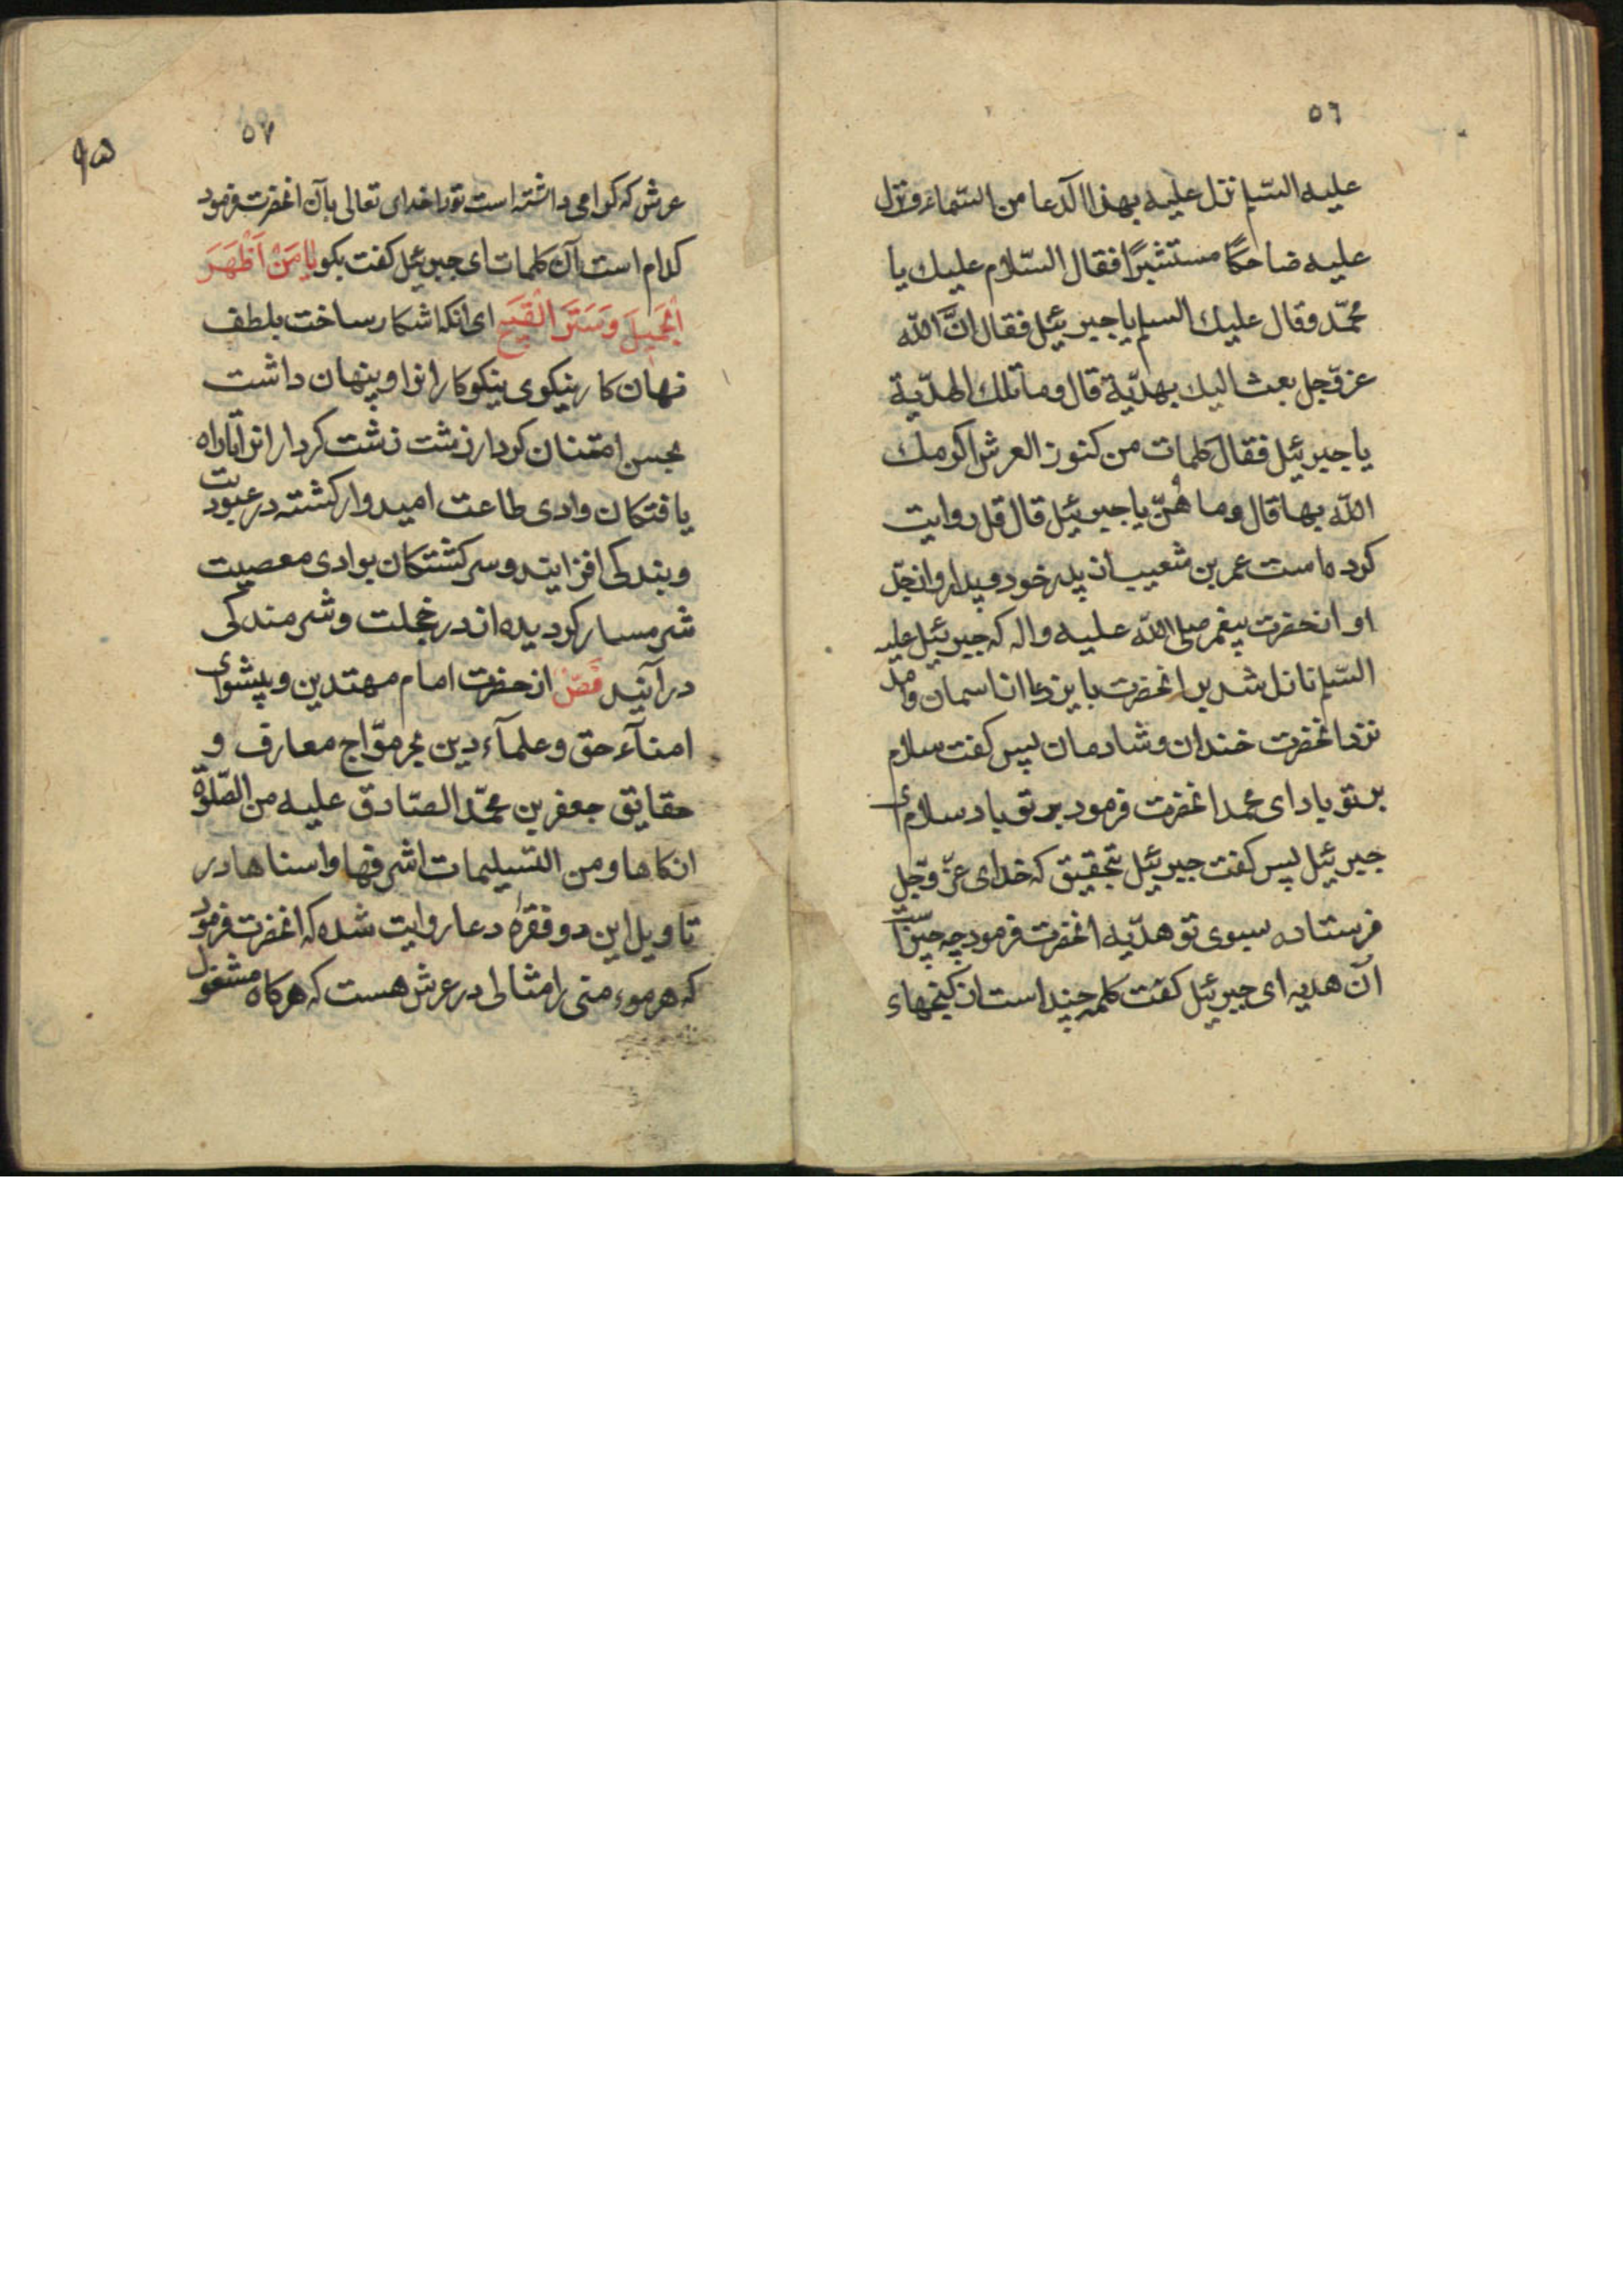 ٥٦
عليه السلم نزل عليه بهذا الدعا من السماء و نزل
عليه ضاحكًا مستبشرًا فقال السّلام عليك يا
محمّد و قال عليك السلم يا جبرئيل فقال انَّ اللّه
عز و جل بعث اليك بهديّة قال و ما تلك الهديّة
يا جبرئيل فقال كلمات من كنوز العرش اكرمك
اللّه بها قال و ما هُنّ يا جبرئيل قال قل روايت
كرده است عمر بن شعيب از پدر خود و پدر او از جدّ
او از حضرت پيغمبر صلى اللّه عليه و اله كه جبرئيل عليه
السّلم نازل شد بر انحضرت باين دعا از اسمان و امد
نزد انحضرت خندان و شادمان پس كفت سلام
بر تو باد اى محمد انحضرت فرمود بر تو باد سلام اى
جبرئيل پس كفت جبرئيل بتحقيق كه خداى عزّ و جل
فرستاده بسوى تو هديّه انحضرت فرمود چه چيز است
آن هديه اى جبرئيل كفت كلمه چند است از كنجهاء
٥٧
٩٥
عرش كه كرامى داشته است تو را خداى تعالى بآن انحضرت فرمود
كدام است آن كلمات اى جبرئيل كفت بكو يا مَنْ اَظْهَرَ
الْجَميلَ وَ سَتَرَ الْقَبيح اى انكه اشكار ساخت بلطف
نهان كار نيكوى نيكو كارانرا و پنهان داشت
بحسن امتنان كردار زشت زشت كردارانرا تا راه
يافتكان وادى طاعت اميدوار كشته در عبوديت
و بندكى افزايند و سر كشتكان بوادى معصيت
شرمسار كرديده از در خجلت و شرمندكى
در آيند فصّ از حضرت امام مهتدين و پيشواى
امنآء حق و علمآء دين بحر موّاج معارف و
حقايق جعفر بن محمّد الصّادق عليه من الصّلوة
ازكاها و من التسليمات اشرفها و اسناها در
تاويل اين دو فقرهٔ دعا روايت شده كه انحضرت فرمود
كه هر موء منى را مثالى در عرش هست كه هر كاه مشغول